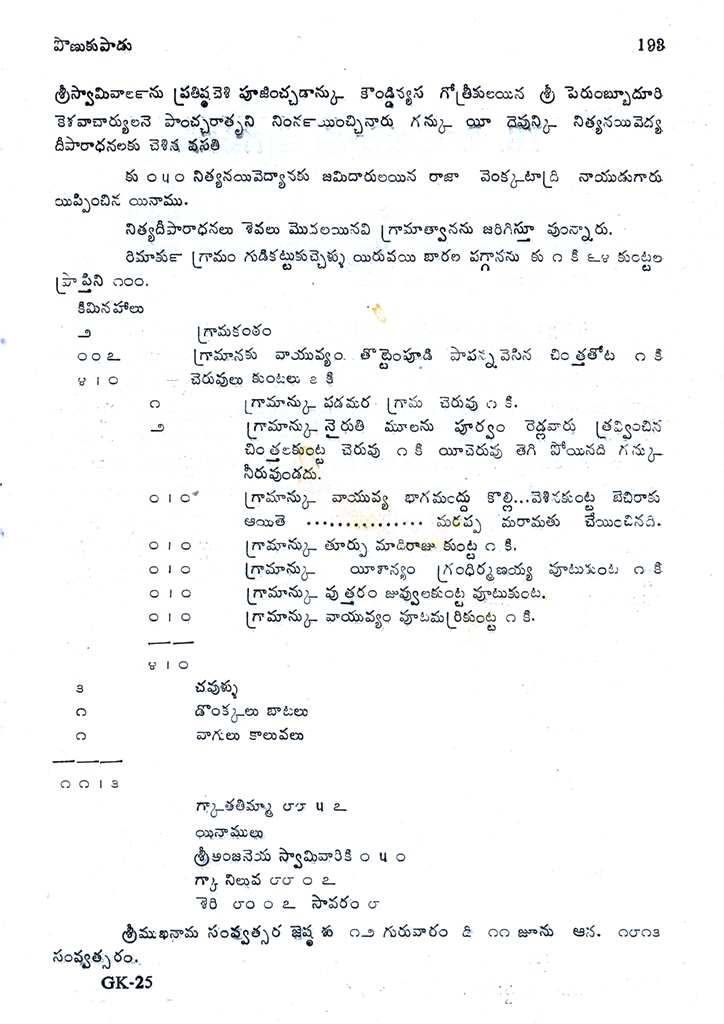 పొణుకుపాడు 193
శ్రీస్వామివాలతిను ప్రతిష్ఠచెశి పూజించ్చడాన్కు కౌండ్డిన్యస గోత్రీకులయిన శ్రీ పెరుంబ్బూదూరి
కెశవాచార్యులనె పాంచ్చరాతృని నింన౯యించ్చినారు గన్కు యీ దెవున్కి నిత్యనయివెద్య
దీపారాధనలకు చెశిన వసతి
కు ౦౫౦ నిత్యనయివెద్యానకు జమిదారులయిన రాజా వెంక్కటాద్రి నాయుడుగారు
యిప్పించిన యినాము.
నిత్యదీపారాధనలు శెవలు మొదలయినవి గ్రామాత్వానను జరిగిస్తూ వున్నారు.
రిమాకు౯ గ్రామం గుడికట్టుకుచ్చెళ్ళు యిరువయి బారల పగ్గానను కు ౧ కి ౬౪ కుంట్టల
ప్రాప్తిని ౧౦౦.
కిమినహాలు
౨ గ్రామకంఠం
౦౦౭ గ్రామానకు వాయువ్యం తొట్టెంపూడి పాపన్న వెసిన చింత్తతోట ౧ కి
౪ । ౦ చెరువులు కుంటలు ౭ కి
౧ గ్రామాన్కు పడమర గ్రామ చెరువు ౧ కి.
౨ గ్రామాన్కు నైరుతి మూలను పూర్వం రెడ్లవారు త్రవ్వించిన
చింత్తలకుంట్ట చెరువు ౧ కి యీచెరువు తెగి పోయినది గన్కు
నీరువుండదు.
౦ । ౦ గ్రామాన్కు వాయువ్య భాగమంద్దు కొల్లి...వెశినకుంట్ట బెచిరాకు
అయితె ............... మరప్ప మరామతు చేయించినది.
౦ । ౦ గ్రామాన్కు తూర్పు మాదిరాజు కుంట్ట ౧ కి.
౦ । ౦ గ్రామాన్కు యీశాన్యం గ్రంధిర్మణయ్య వూటుకుంట ౧ కి
౦ । ౦ గ్రామాన్కు వుత్తరం జువ్వులకుంట్ట వూటుకుంట.
౦ । ౦ గ్రామాన్కు వాయువ్యం వూటమర్రికుంట్ట ౧ కి.
౪ । ౦
౩ చవుళ్ళు
౧ డొంక్కలు బాటలు
౧ వాగులు కాలువలు
౧౧।౩
గ్కాతతిమ్మా ౮౮ ౫ ౭
యినాములు
శ్రీఆంజనెయ స్వామివారికి ౦ ౫ ౦
గ్కా నిలువ ౮౮ ౦ ౭
శెరి ౮౦ ౦ ౭ సావరం ౮
శ్రీముఖనామ సంవ్వత్సర జ్యెష్ఠ శు ౧౨ గురువారం ది ౧౧ జూను ఆన. ౧౮౧౩
సంవ్వత్సరం.
GK-25